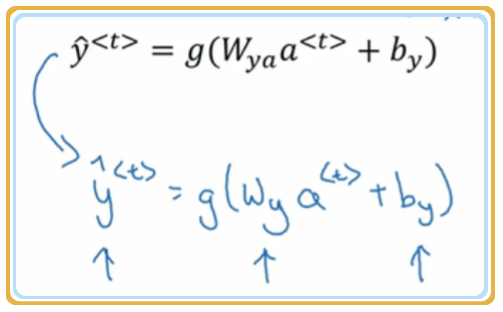 ŷ<t> = g(Wyaa<t> + by)
ŷ<t> = g(Wy a<t> + by)